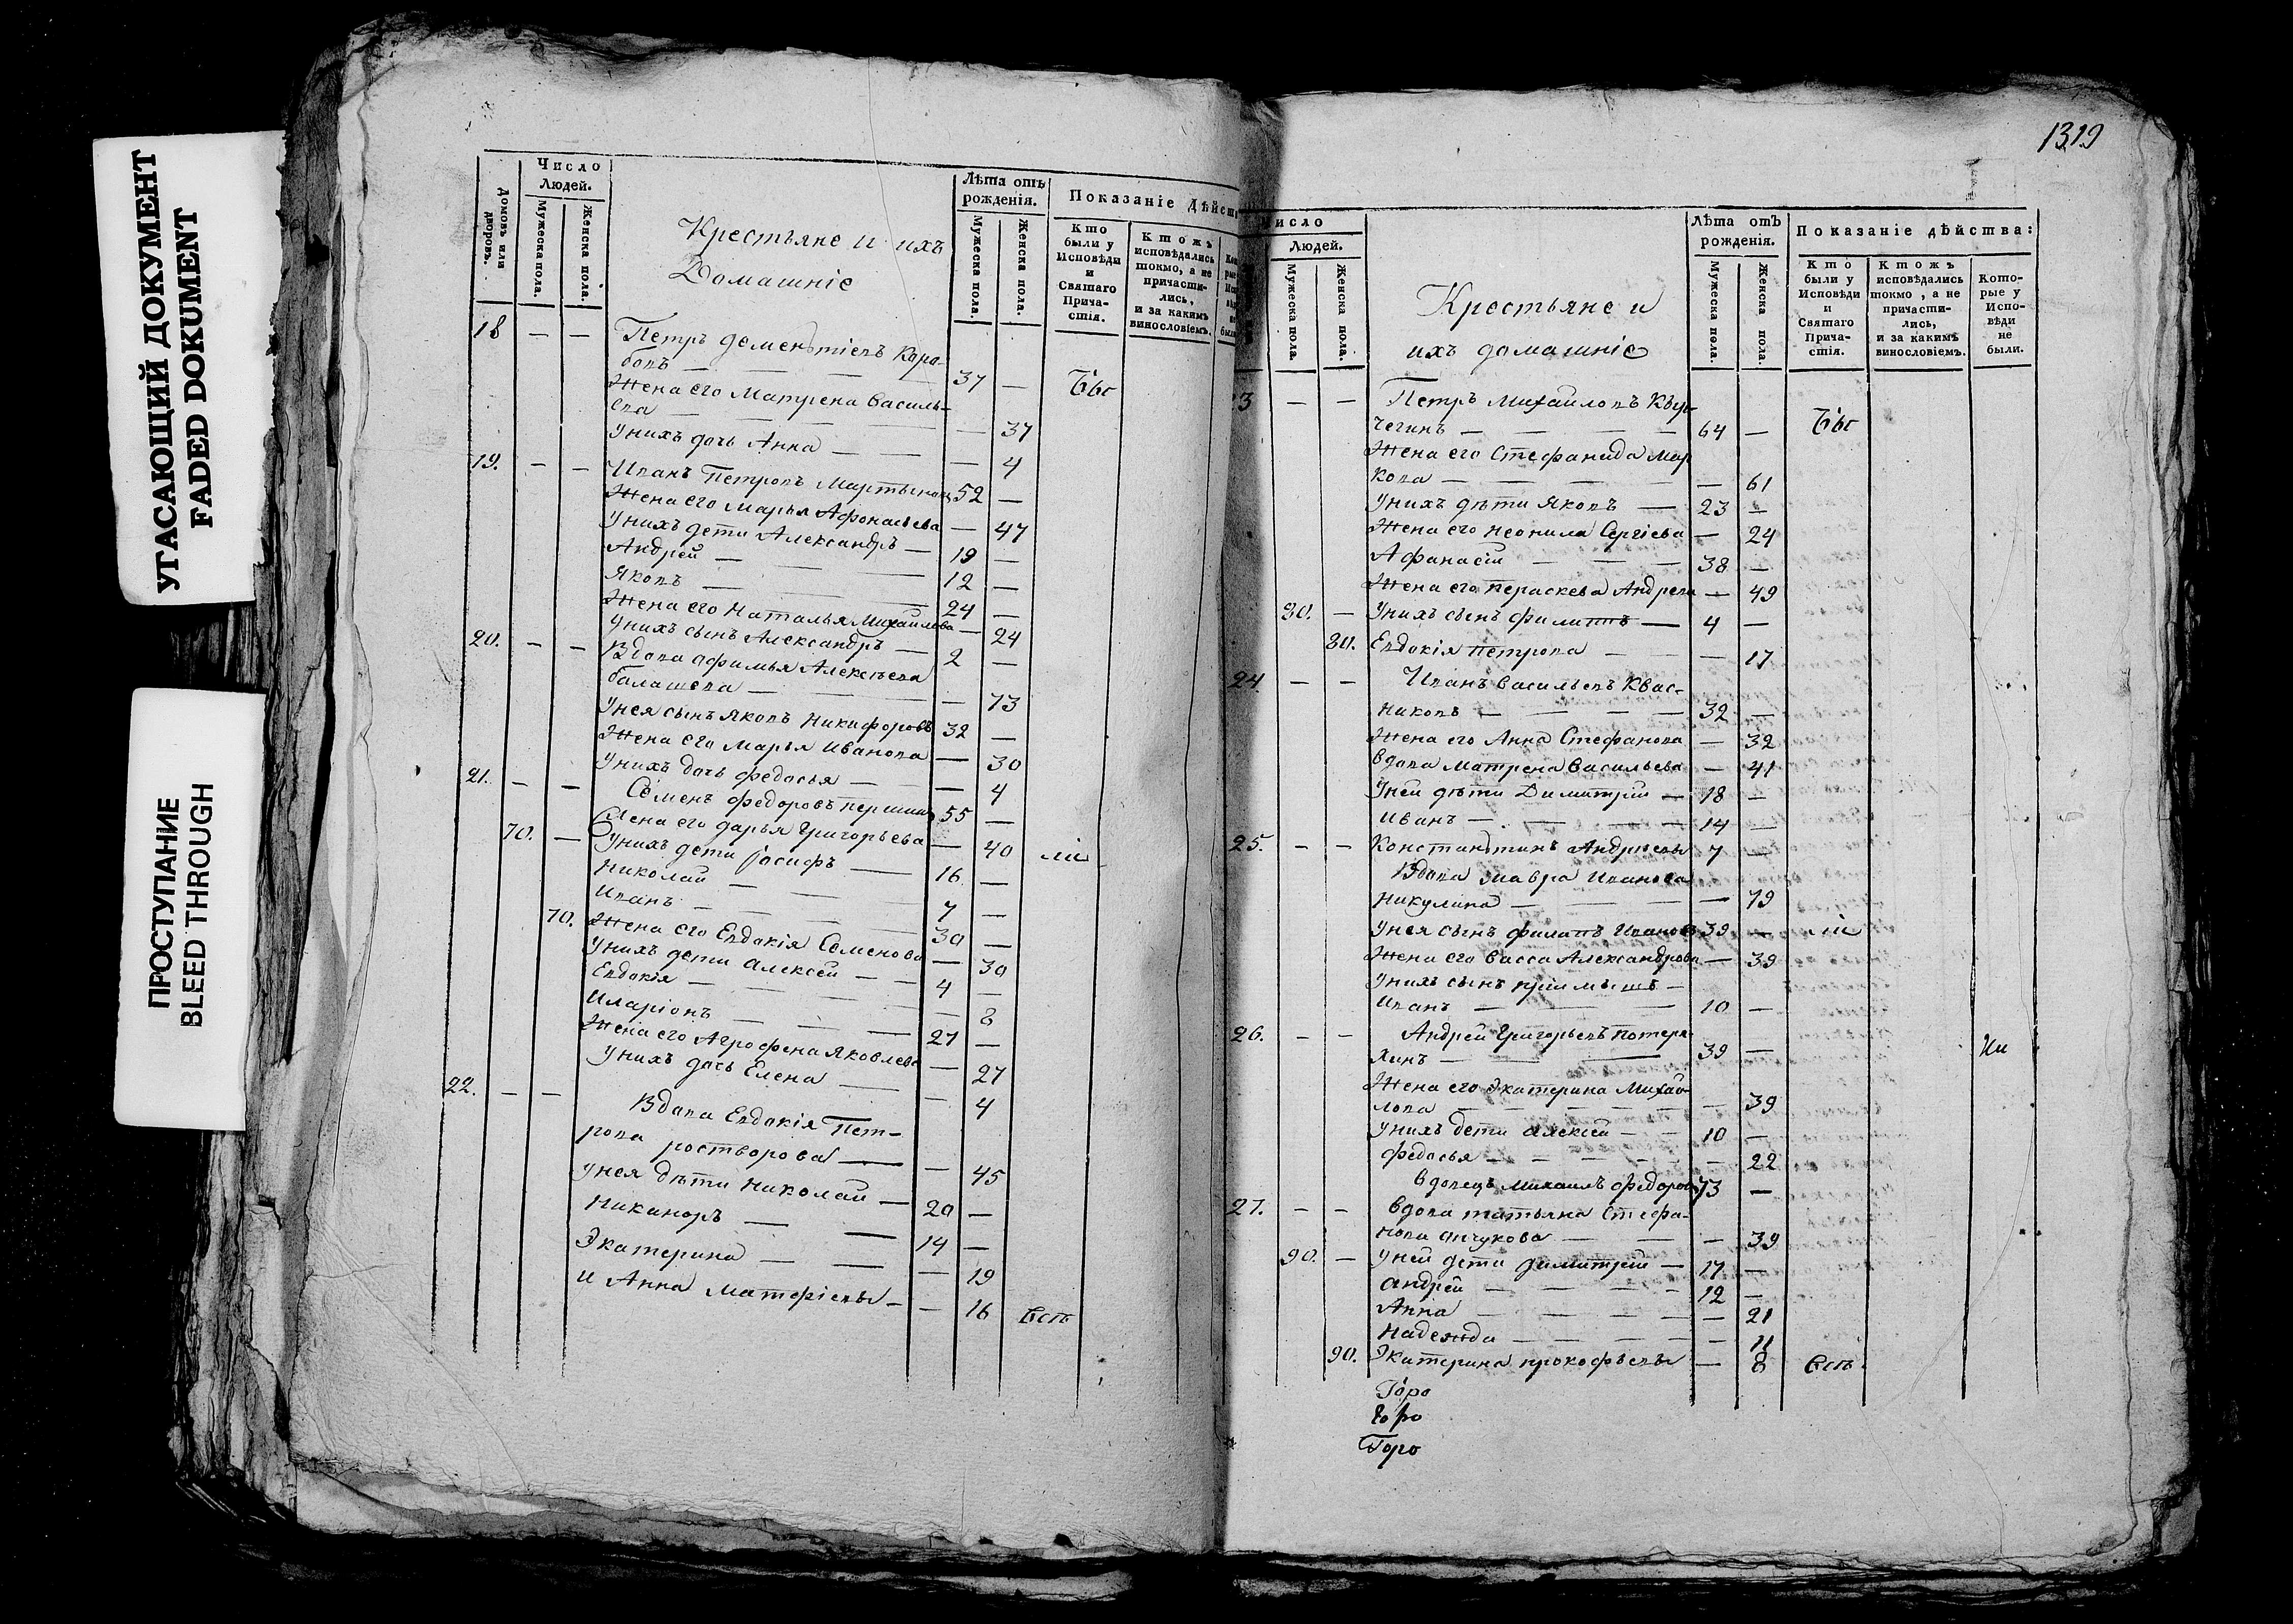 УГАСАЮЩИЙ ДОКУМЕНТ
FADED DOKUMENT
ПРОСТУПАНИЕ
BLEED THROUGH
Домовъ или дворовъ.
Число
Людей.
Мужеска пола.
Женска пола.
Крестьяне и ихъ
Домашніе
Лѣта отъ
рожденія.
Мужеска пола.
Женска пола.
Показаніе Дѣйст
Кто
были у
Исповѣди
и
Святаго
Прича-
стія.
Ктожъ
исповѣдались
токмо, а не
причасти-
лись,
и за какимъ
винословіемъ.
18 — — Петръ дементіевъ Кара-
бовъ — 37 — Бы
Жена его Матрена Василь-
ева — — 37
Унихъ дочь Анна — — 4
19. — — Иванъ Петровъ Мартыновъ 52 —
Жена его Марья Афонасьева — 47
Унихъ дети Александръ — 19 —
Андрей — 12 —
Яковъ — 24 —
Жена его Наталья Михайлова — 24
Унихъ сынъ Александръ — 2 —
20. — — Вдова Афимья Алексѣева
балашева — — 73
Унея сынъ Яковъ Никифоровъ 32 —
Жена его Марья Иванова — 30
Унихъ дочь Федосья — — 4
21. — — Семенъ Федоровъ першинъ 55 —
Жена его дарья Григорьева — 40 ли
70. — Унихъ дети Іосифъ — 16 —
Николай — 7 —
Иванъ — 30 —
70. Жена его Евдокія Семенова — 30
Унихъ дети Алексей — 4 —
Евдокія — — 8
Иларіонъ — 27 —
Жена его Агрофена Яковлева — 27
Унихъ дочь Елена — — 4
22. — — Вдова Евдокія Пет-
рова ростворова — — 45
Унея дѣти Николай — 20 —
Никаноръ — 14 —
Экатерина — — 19
и Анна Матфіевы — — 16 всѣ
1319
Число
Людей.
Мужеска пола.
Женска пола.
Крестьяне и
ихъ домашніе
Лѣта отъ
рожденія.
Мужеска пола.
Женска пола.
Показаніе дѣйства:
Кто
были у
Исповѣди
и
Святаго
Прича-
стія.
Ктожъ
исповѣдались
токмо, а не
причасти-
лись,
и за какимъ
винословіемъ.
Кото-
рые у
Испо-
вѣди
не
были.
23 — — Петръ Михайловъ
чегинъ — 64 — Бы
Жена его Стефанида Мар
кова — — 61
Унихъ дѣти Яковъ — 23 —
Жена его Неонила Сергіева — 24
Афанасій — 38 —
Жена его Пераскева Андреева — 49
80. — Унихъ сынъ Филиппъ — 4 —
80. Евдокія Петрова — — 17
24 — — Иванъ Васильевъ Квас-
никовъ — 32 —
Жена его Анна Стефанова — 32
Вдова Матрена Васильева — 41
Уней дѣти Димитрій — 18 —
Иванъ — 14 —
25. — — Константинъ Андреевы 7 —
Вдова Мавра Иванова
Никулина — — 79
Унея сынъ Филипъ Ивановъ 39 — ли
Жена его Васса Александрова — 39
Унихъ сынъ приимышъ —
Иванъ — 10 —
26. — — Андрей Григорьевъ Потеря-
хинъ — 39 — Ни
Жена его Экатерина Михай-
лова — — 39
Унихъ дети Алексей — 10 —
Федосья — — 22
Вдовецъ Михаилъ Федоровъ 73 —
27. — — Вдова татьяна Стефа-
нова Анчукова — — 39
90. — Уней дети Димитрей — 17 —
Андрей — 12 —
Анна — — 21
Надежда — — 11
90. Экатерина прокофьевы — 8 всѣ
Горо
Горо
Горо